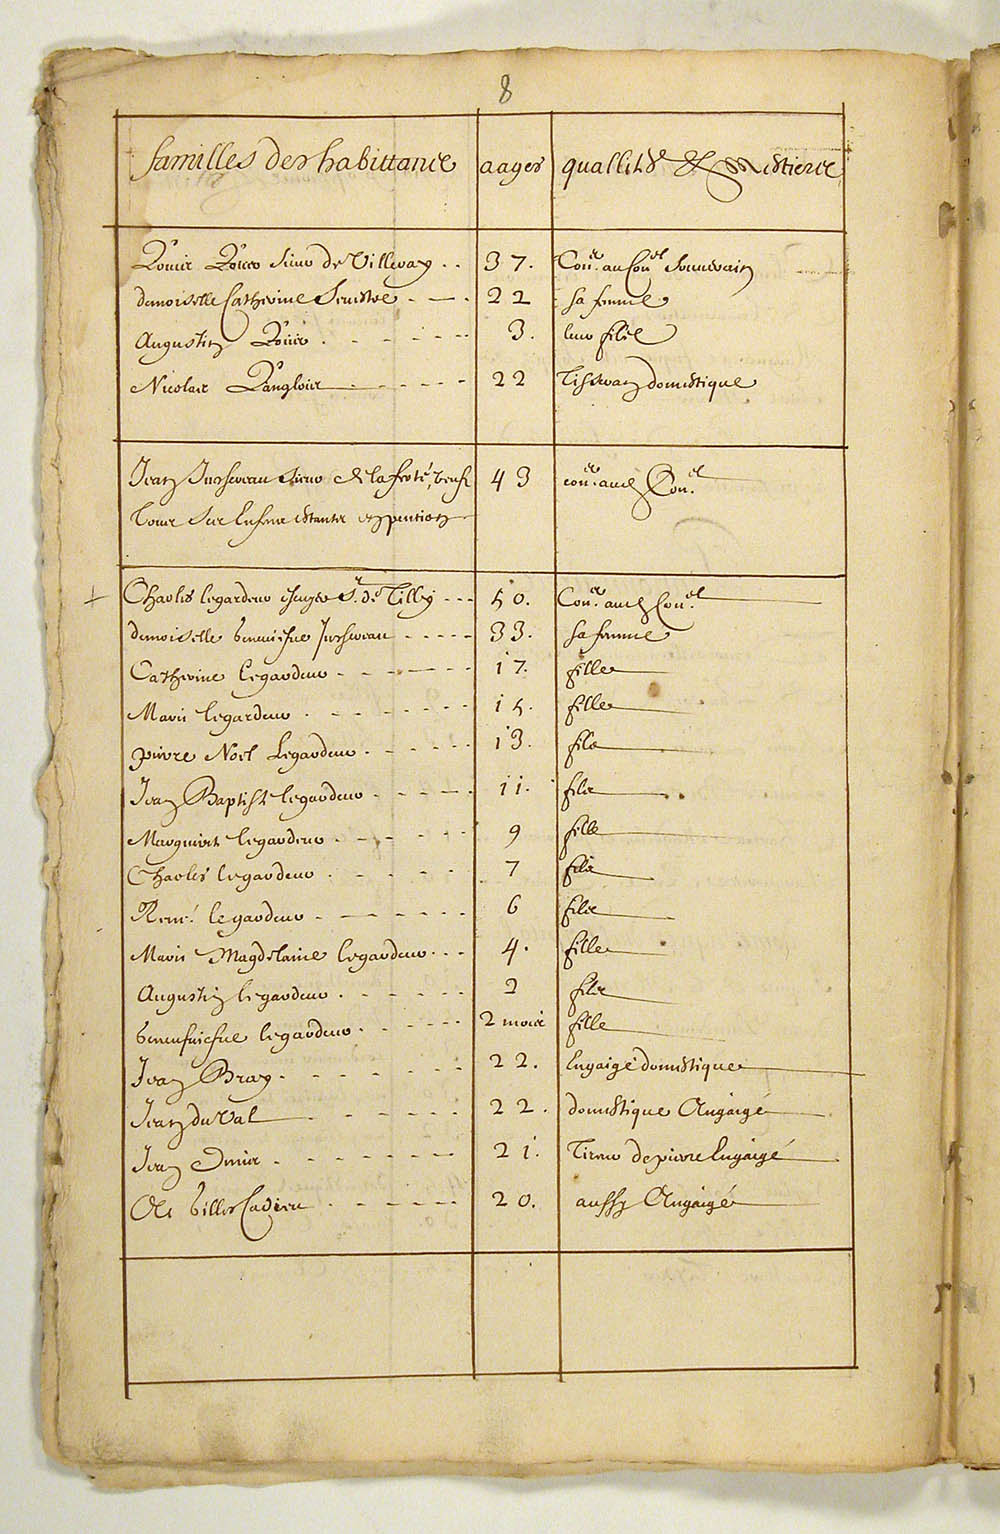 8
familles des habittants aages quallités et mestiers
Louis Rouer sieur de Villeray .. 37. Coner. au Conel souverain
damoiselle Catherine Seuestre - - - . 22 sa femme
Augustin Rouer . - - - - - - 3. leur filz
Nicolas Langlois - - - - - - 22 Tisseran domestique
Jean Jucherau sieur de la ferté, 43 coner. aud. Conel.
sur enfans estants en pention
Charles legardeur escuyer Sr. de Tilly - - - 50. Coner. aud. Conel.
damoiselle Geneuiefue Jucherau - - - - - 33. sa femme
Catherine legardeur - - - - - - - 17. fille
Marie legardeur . - - - - - - - 15. fille
pierre Noël Legardeur - - - - - - 13. filz
Jean Baptiste legardeur - - - - - 11. filz
Marguerite legardeur - - - - - - 9 fille
Charles legardeur . - - - - - - 7 filz
René legardeur - - - - - - - 6 filz
Marie Magdelaine legardeur . - - 4. fille
Augustin legardeur . - - - - - - 2 filz
Geneufuiefue legardeur - - - - - - 2 mois fille
Jean Bray - - - - - - - - 22. Engaigé domestique
Jean du Val - - - - - - - 22. domestique Angaigé
Jean - - - - - - - - 21. Tireur de pierre Engaigé
Gilles Cadieu - - - - - - - 20. aussy Angaigé